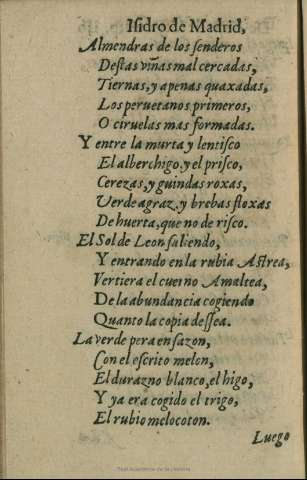 Isidro de Madrid,
Almendras de los ſenderos
Deſtas viñas mal cercadas,
Tiernas, y apenas quaxadas,
Los peruetanos primeros,
O ciruelas mas formadas.
Y entre la murta y lentiſco
El alberchigo, y el priſco,
Cerezas, y guindas roxas,
Verde agraz, y brebas floxas
De huerta, que no de riſco.
El Sol de Leon ſaliendo,
Y entrando en la rubia Aſtrea,
Vertiera el cuerno Amaltea,
De la abundancia cogiendo
Quanto la copia deſſea.
La verde pera en ſazon,
Con el eſcrito melon,
El durazno blanco, el higo,
Y ya era cogido el trigo,
El rubio melocoton.
Luego
Real Academia de la Historia